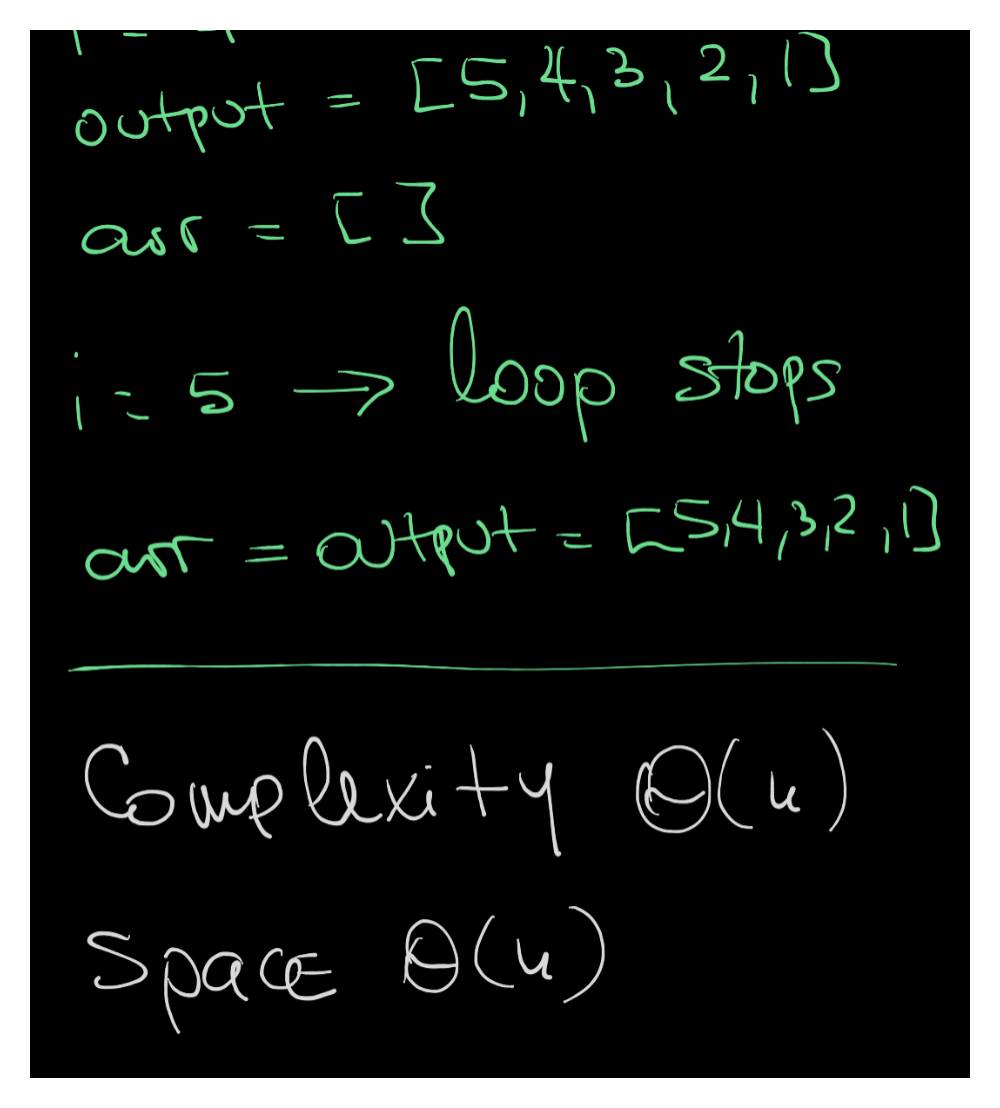 output = [5,4,3,2,1]
arr = []
i = 5 → loop stops
arr = output = [5,4,3,2,1]
Complexity Θ(n)
Space Θ(n)